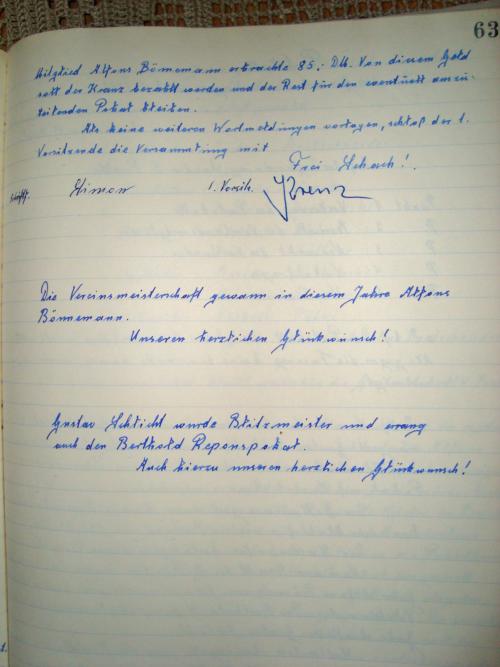 63
Mitglied Alfons Bönnemann erbrachte 85,- DM. Von diesem Geld
soll der Kranz bezahlt werden und der Rest für den eventuell auszu-
teilenden Pokal bleiben.
Als keine weiteren Wortmeldungen vorlagen, schloß der 1.
Vorsitzende die Versammlung mit
Frei Schach!
Schriftf. Simon 1. Vorsitz. Krenz
Die Vereinsmeisterschaft gewann in diesem Jahre Alfons
Bönnemann.
Unseren herzlichen Glückwunsch!
Gustav Schlicht wurde Blitzmeister und errang
auch den Berthold Reponspokal.
Auch hierzu unseren herzlichen Glückwunsch!